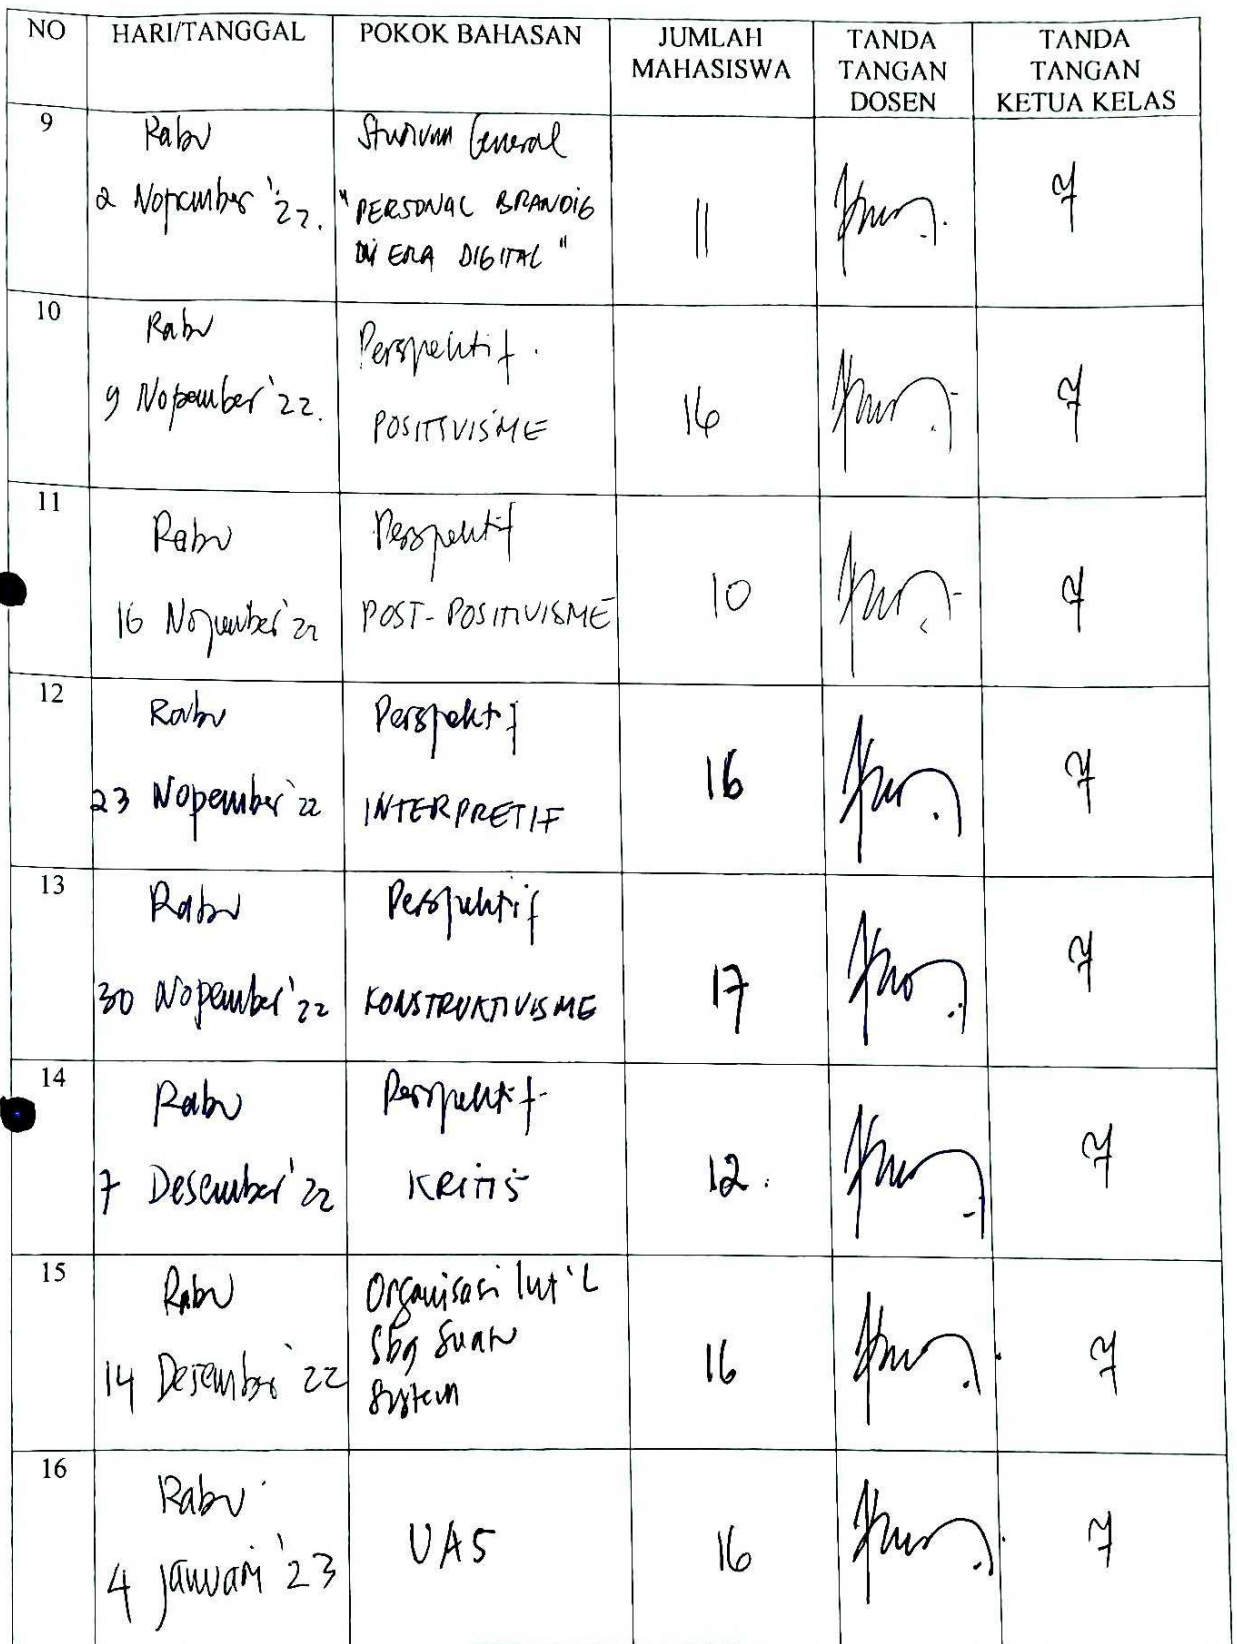 NO HARI/TANGGAL POKOK BAHASAN JUMLAH MAHASISWA TANDA TANGAN DOSEN TANDA TANGAN KETUA KELAS
9
Rabu
2 Nopember '22.
Studium General
"PERSONAL BRANDIG
DI ERA DIGITAL"
11
10
Rabu
9 Nopember '22.
Perspektif.
POSITIVISME
16
11
Rabu
16 Nopember '22
Perspektif
POST-POSITIVISME
10
12
Rabu
23 Nopember '22
Perspektif
INTERPRETIF
16
13
Rabu
30 Nopember '22
Perspektif
KONSTRUKTIVISME
17
14
Rabu
7 Desember '22
Perspektif
KRITIS
12.
15
Rabu
14 Desember '22
Organisasi Int'L
Sbg Suatu
System
16
16
Rabu
4 Januari '23
UAS
16